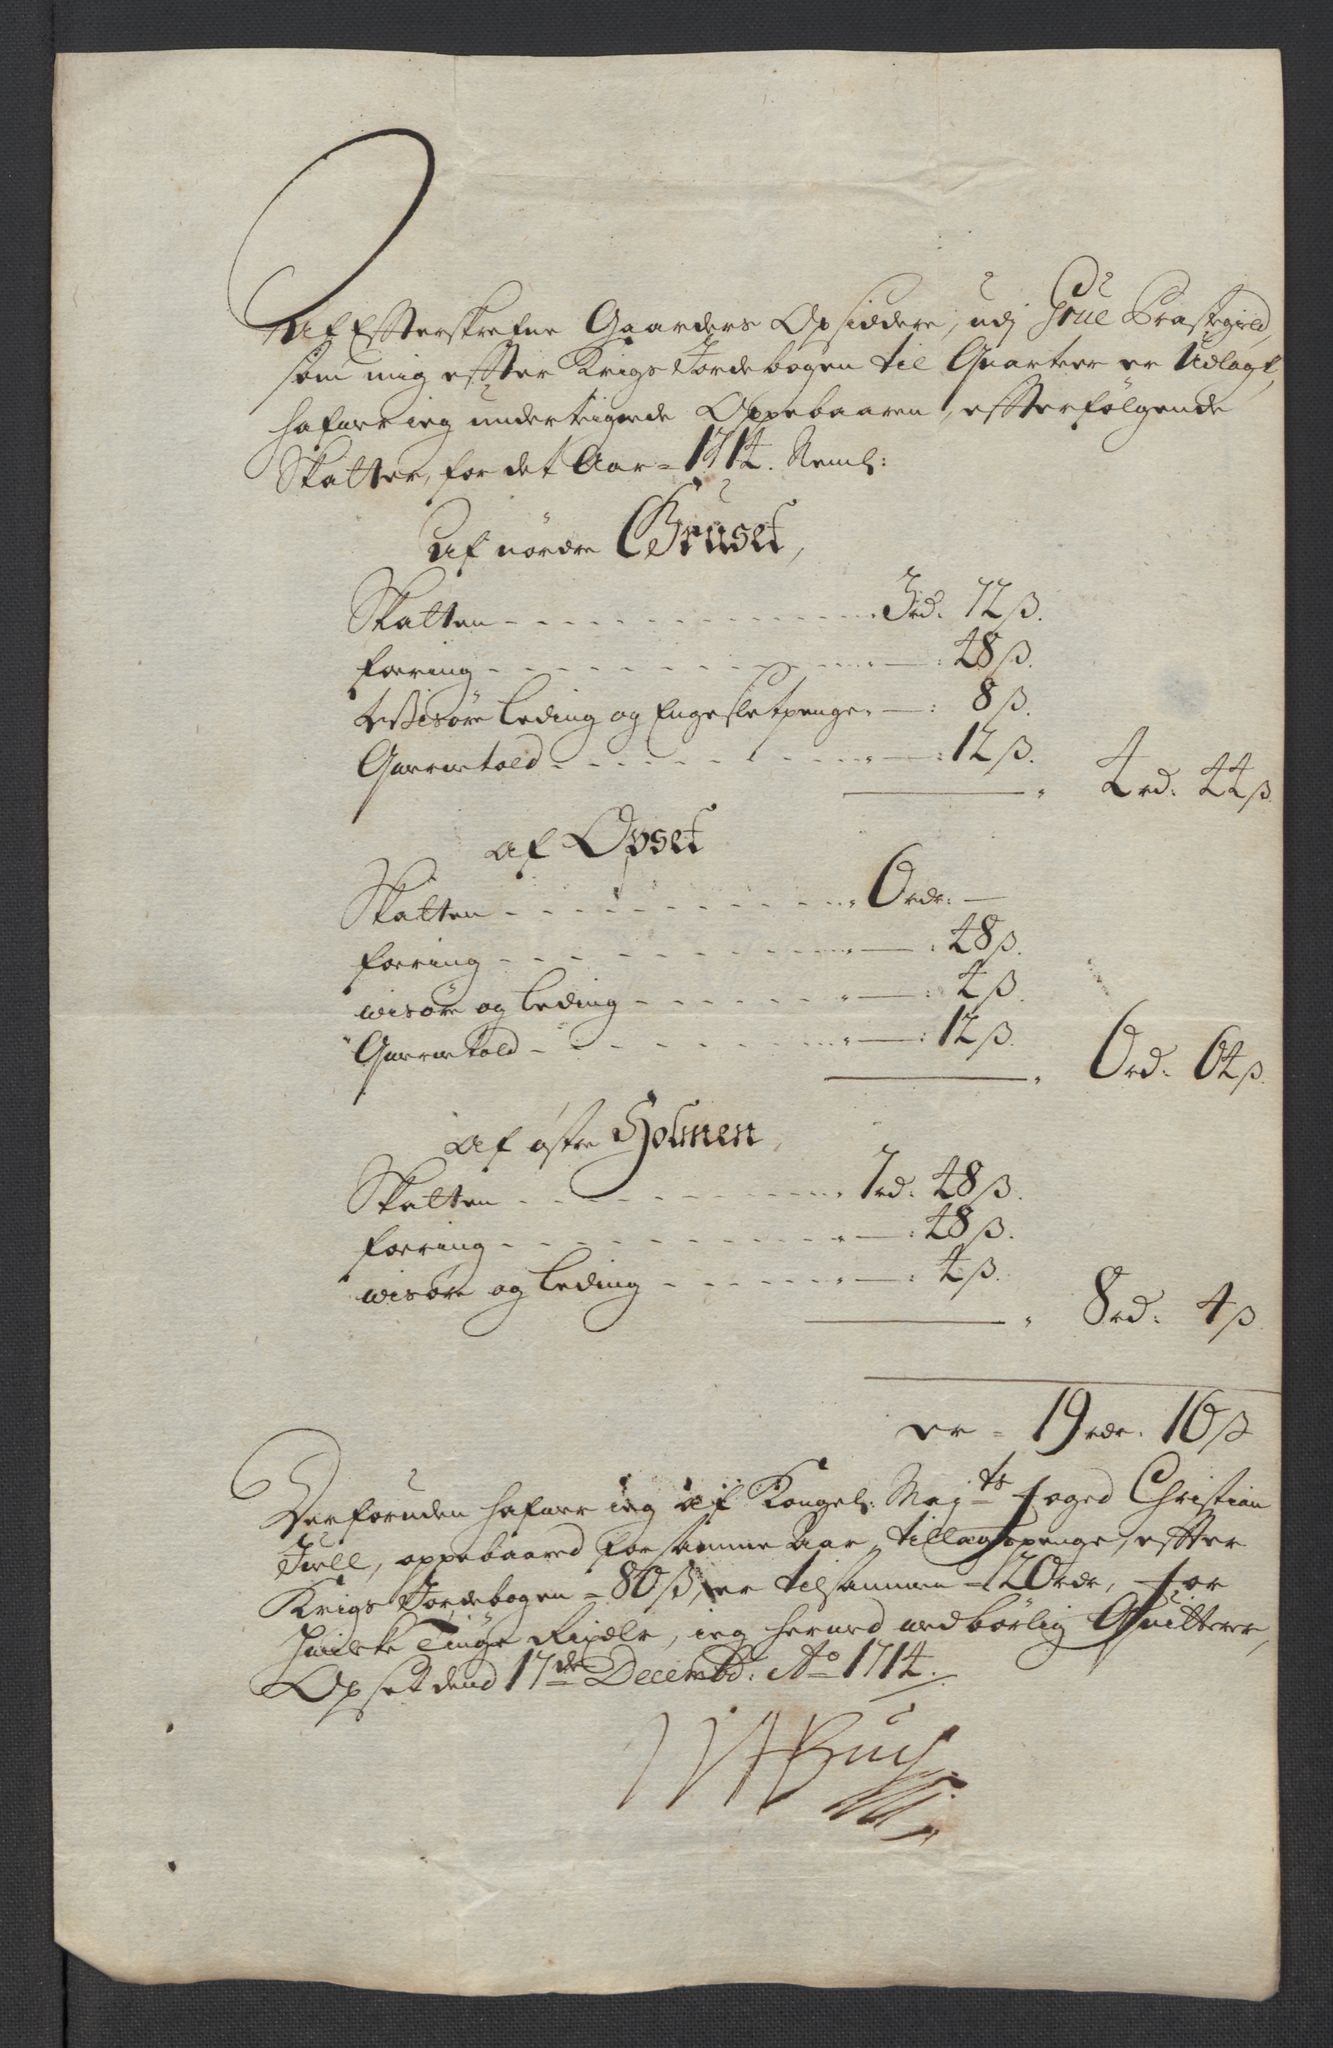 Af Effterskrefne Gaarders Opsiddere, udj Grue Præstegield,
som mig effter Krigs Jordebogen til Quarteer er Udlagt,
hafuer ieg underteignede Oppebaaren, effterfølgende
Skatter, for det Aar = 1714. Neml:
Af nordre Gruset,
Skatten - - - 3rd. 72 ß.
foering - - - — : 48 ß.
Wisøre Leding og Engesletpenge. — : 8 ß.
Quærnetold - - - — : 12 ß.
4rd: 44 ß
af Opset
Skatten - - - 6rdr. —
foering - - - — : 48 ß.
wisøre og Leding - - - — : 4 ß.
Quærnetold - - - — : 12 ß.
6rd: 64 ß.
Af østre Holmen,
Skatten - - - 7rd: 48 ß.
foering - - - — : 48 ß.
wisøre og Leding - - - — : 4 ß.
8rd: 4 ß
er = 19 rdr. 16 ß
Derforuden hafuer ieg af Kongel: Maj:ts foged Christian
Juell, oppebaared for samme Aar, Tillagspenge, effter
Krigs Jordebogen = 80 ß, er tilsammen = 20 rdr, for
huilcke Tiuge Rixdlr, ieg hermed wedbørlig Quitterer,
Opset dend 17de Decembr: Ao 1714.
Buch